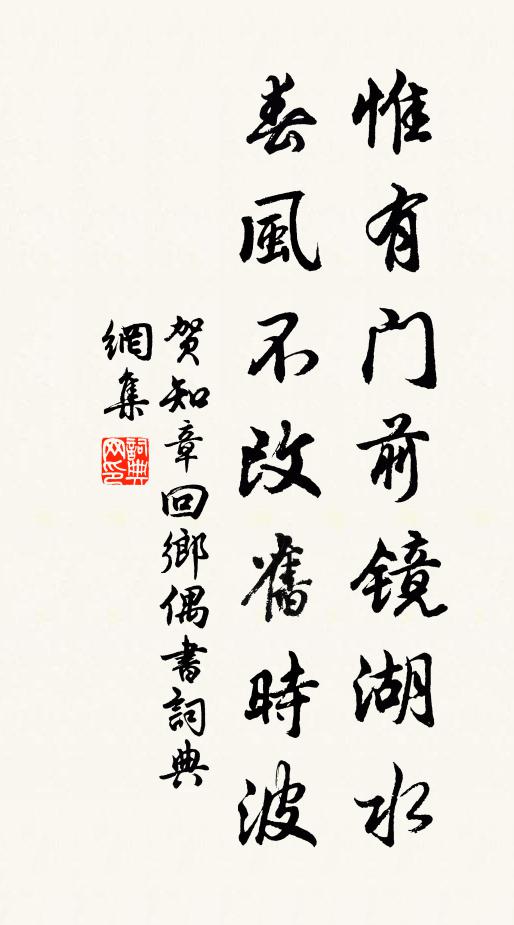 惟有门前镜湖水
春風不改舊時波
贺知章回鄉偶書詞典
網集
詞典網印